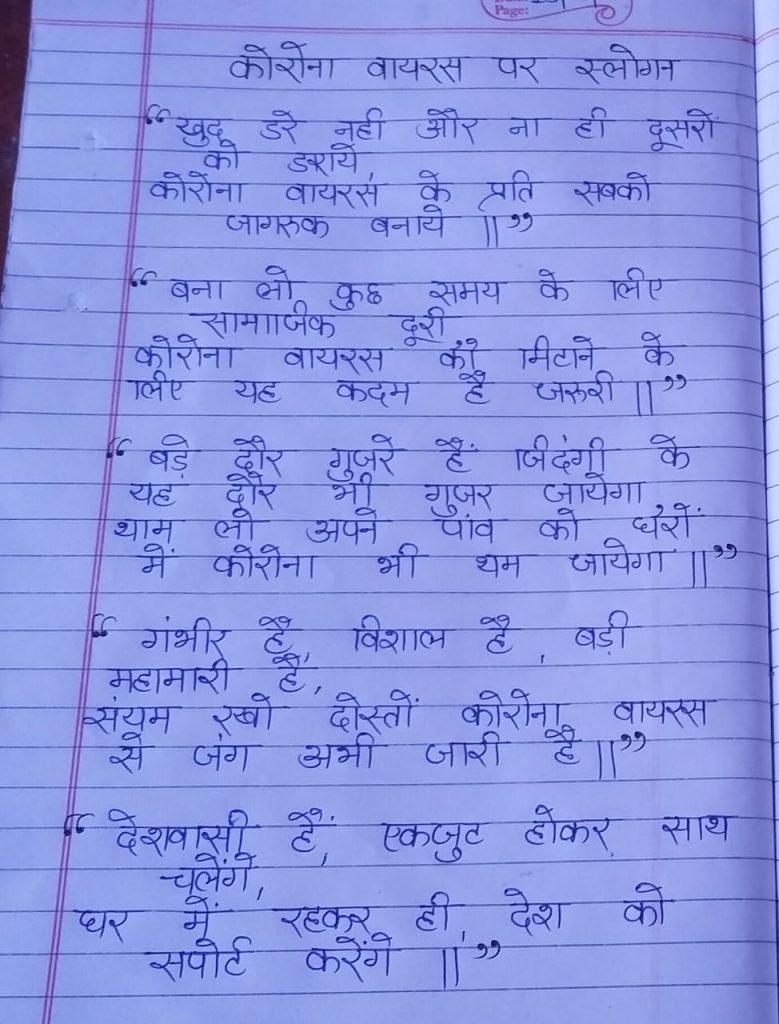 Page:
कोरोना वायरस पर स्लोगन
“ खुद डरे नही और ना ही दूसरों
को डराये,
कोरोना वायरस के प्रति सबको
जागरुक बनाये ||”
“ बना लो कुछ समय के लिए
सामाजिक दूरी
कोरोना वायरस को मिटाने के
लिए यह कदम है जरुरी ||”
“ बड़े दौर गुजरे हैं जिंदगी के
यह दौर भी गुजर जायेगा,
थाम लो अपने पांव को घरों
में कोरोना भी थम जायेगा ||”
“ गंभीर है, विशाल है, बड़ी
महामारी है,
संयम रखो दोस्तों कोरोना वायरस
से जंग अभी जारी है ||”
“ देशवासी हैं, एकजुट होकर साथ
चलेंगे,
घर में रहकर ही देश को
सपोर्ट करेंगे ||”